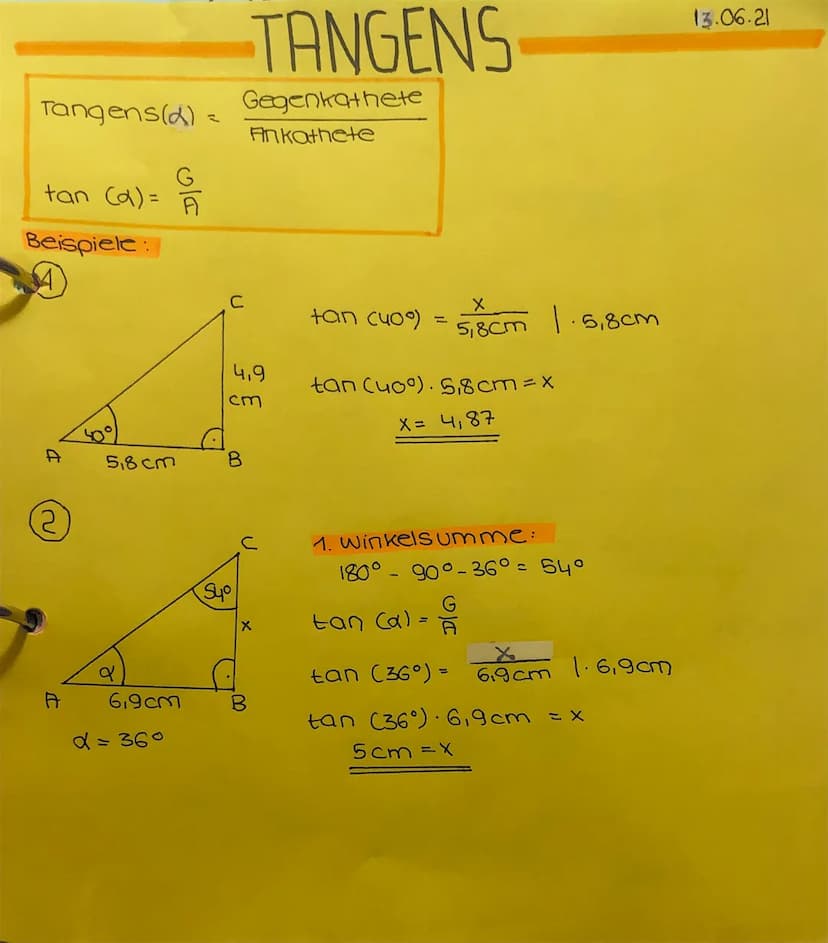 TANGENS
13.06.21
Tangens(α) = Gegenkathete / Ankathete
tan (α) = G / A
Beispiele:
1
C
4,9
cm
40°
A
5,8 cm
B
tan (40°) = x / 5,8cm | · 5,8cm
tan (40°) · 5,8cm = x
x = 4,87
2
C
54°
x
α
A
6,9cm
B
α = 36°
1. Winkelsumme:
180° - 90° - 36° = 54°
tan (α) = G / A
tan (36°) = x / 6,9cm | · 6,9cm
tan (36°) · 6,9cm = x
5cm = x